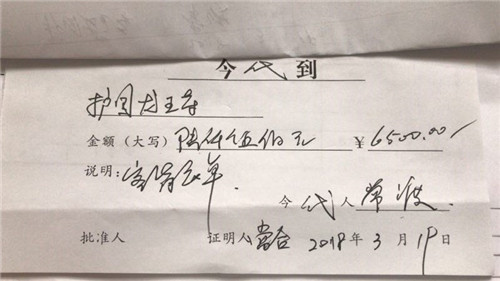 今代到
护国龙王寺
金额（大写）陆仟伍佰元 ￥6500.00
说明：
今代人 常波
批准人 证明人 2018年3月19日